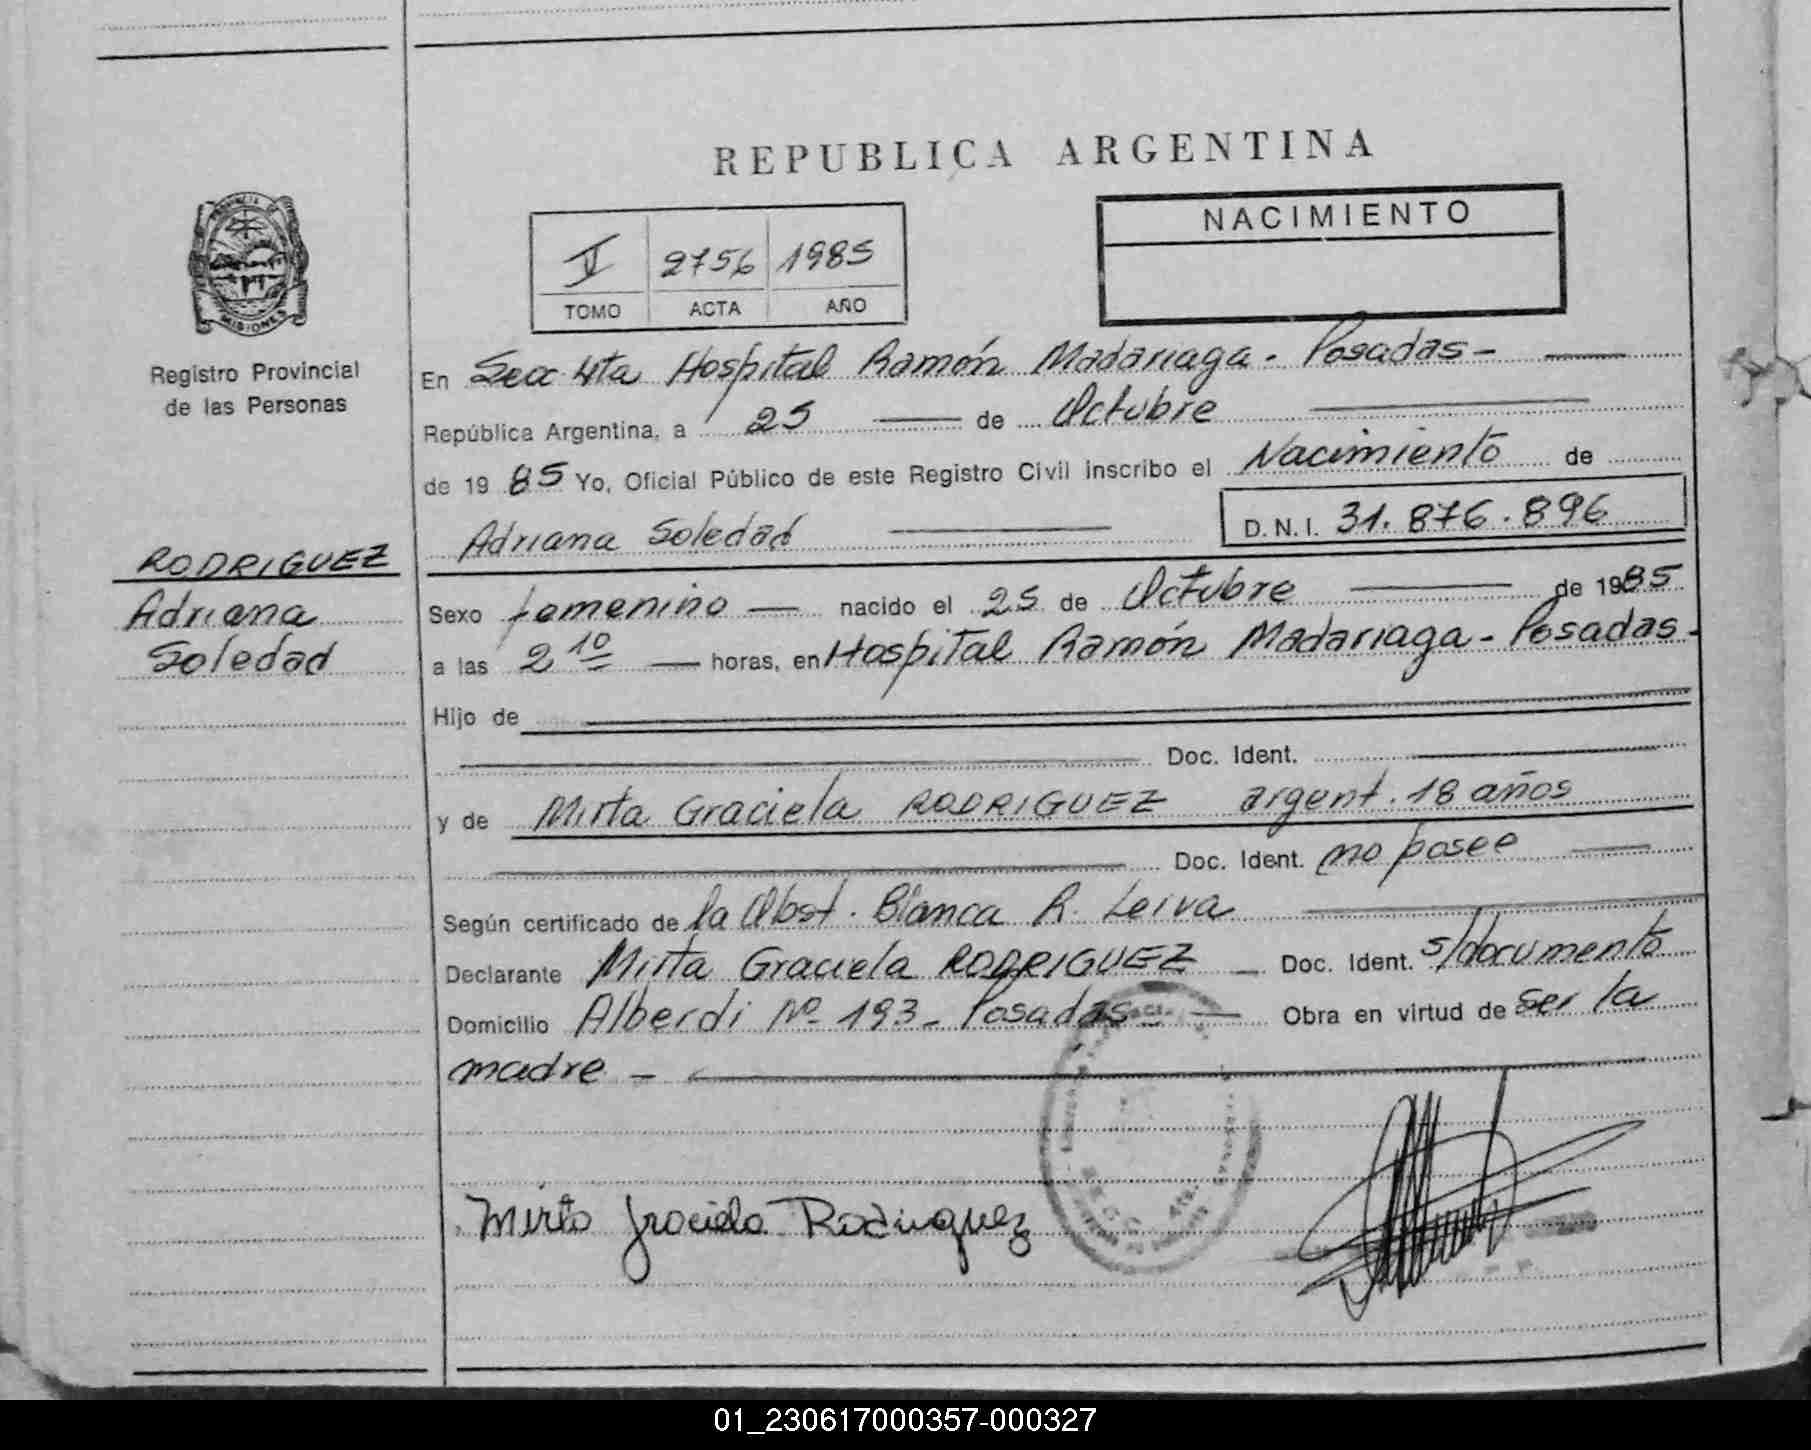 REPUBLICA ARGENTINA
NACIMIENTO
V 2756 1985
TOMO ACTA AÑO
PROVINCIA DE
MISIONES
Registro Provincial
de las Personas
En Secc 4ta Hospital Ramón Madariaga - Posadas -
República Argentina, a 25 de Octubre
de 1985 Yo, Oficial Público de este Registro Civil inscribo el Nacimiento de
Adriana Soledad D.N.I. 31.876.896
RODRIGUEZ
Adriana
Soledad
Sexo femenino nacido el 25 de Octubre de 1985
a las 2 10 horas, en Hospital Ramón Madariaga - Posadas -
Hijo de
Doc. Ident.
y de Mirta Graciela RODRIGUEZ argent. 18 años
Doc. Ident. no posee
Según certificado de la Obst. Blanca R. Leiva
Declarante Mirta Graciela RODRIGUEZ - Doc. Ident. s/documento
Domicilio Alberdi Nº 193 - Posadas - Obra en virtud de ser la
madre -
Mirta Graciela Rodriguez
01_230617000357-000327